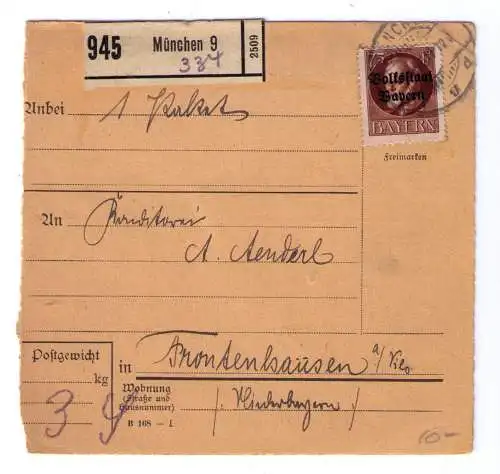 945 München 9 2509
337
Volksstaat
Bayern
BAYERN
Anbei 1 Paket
Freimarken
An Konditorei
A. Aenderl
Postgewicht
kg
in Frontenhausen a/Vils
Wohnung
(Straße und
Hausnummer)
/: Niederbayern /
3
B 168 - I
10-